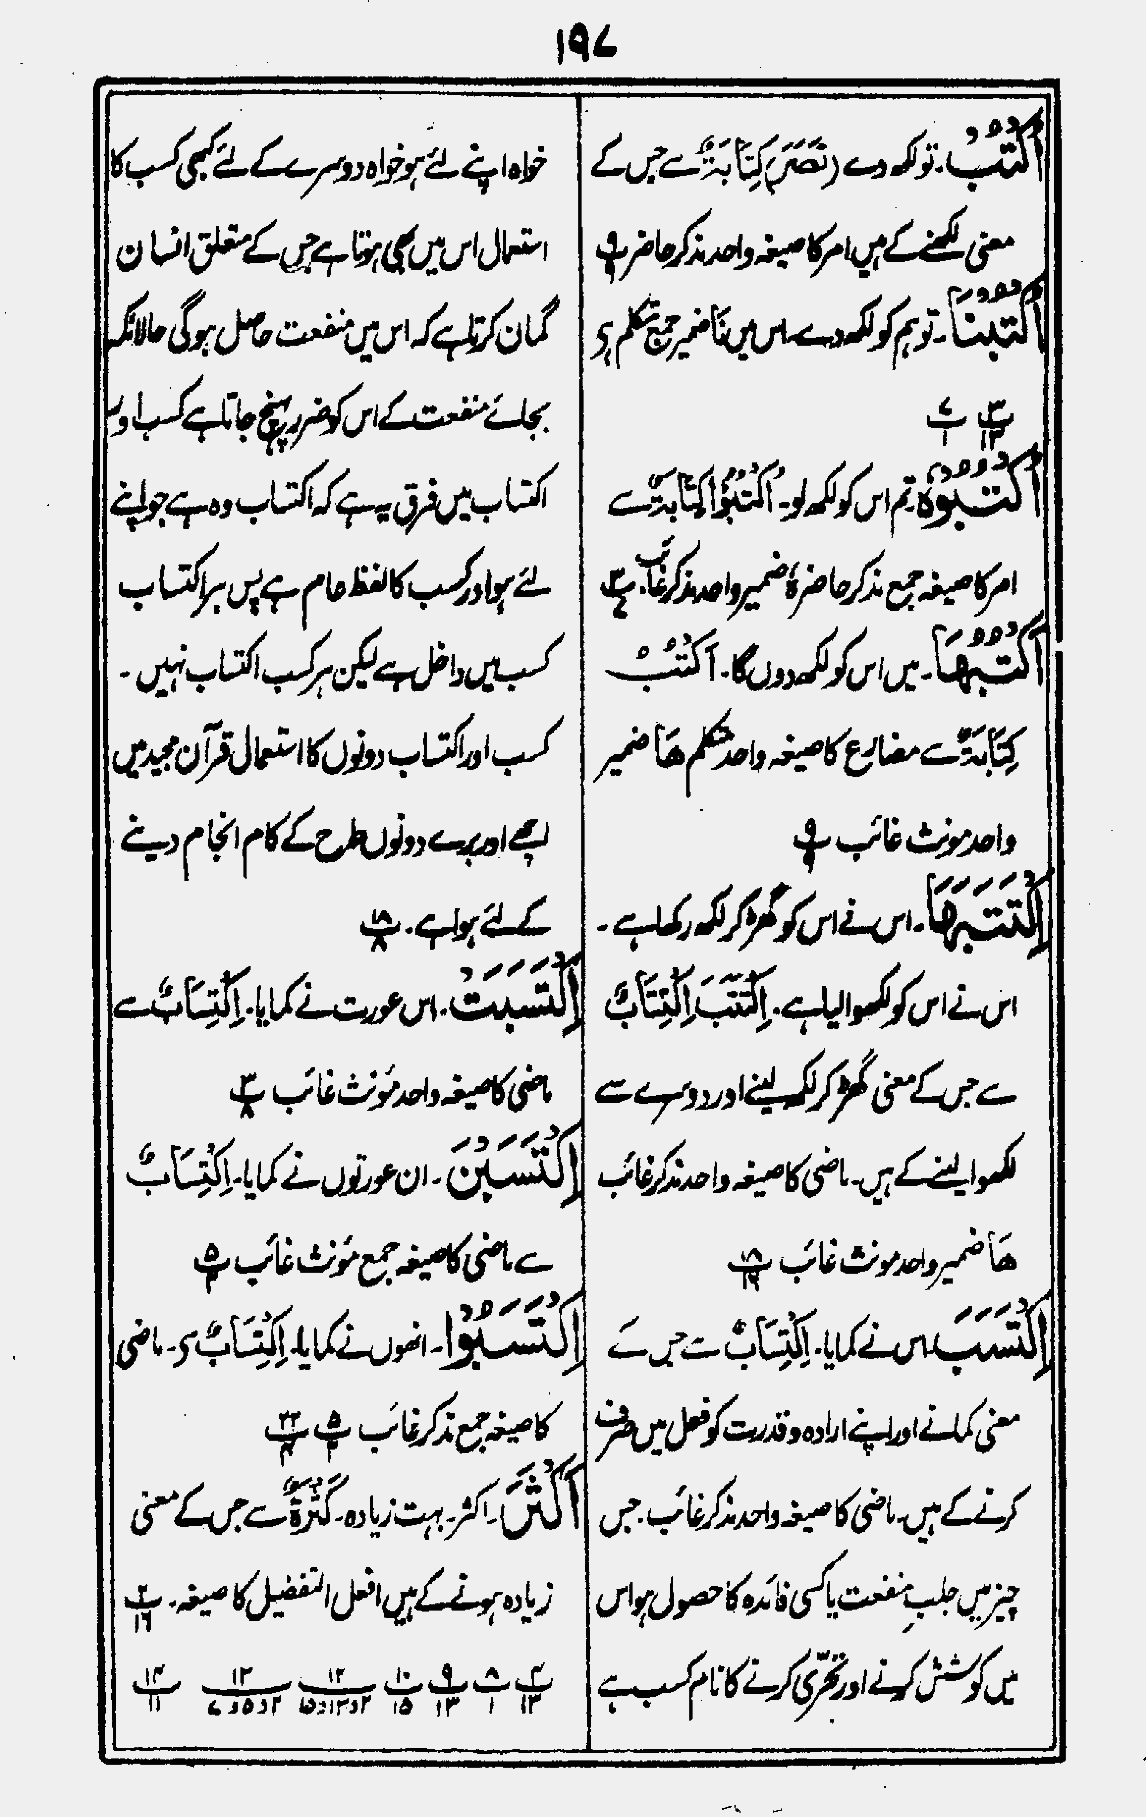 ۱۹۷
اُكْتُبْ۔ تو لکھ دے (نَصَرَ) كِتَابَةٌ سے جس کے
معنی لکھنے کے ہیں امر کا صیغہ واحد مذکر حاضر پ ۹
اُكْتُبْنَا۔ تو ہم کو لکھ دے۔ اس میں نَا ضمیر جمع متکلم ہے
پ ۳ ۱۳ پ ۷ ۱
اُكْتُبُوْهُ۔ تم اس کو لکھ لو۔ اُكْتُبُوْا كِتَابَةٌ سے
امر کا صیغہ جمع مذکر حاضر هُ ضمیر واحد مذکر غائب۔ پ ۳ ۷
اَكْتُبُهَا۔ میں اس کو لکھ دوں گا۔ اَكْتُبُ
كِتَابَةٌ سے مضارع کا صیغہ واحد متکلم هَا ضمیر
واحد مونث غائب پ ۹ ۹
اِكْتَتَبَهَا۔ اس نے اس کو گھڑ کر لکھ رکھا ہے۔
اس نے اس کو لکھوا لیا ہے۔ اِكْتَتَبَ اِكْتِتَابٌ
سے جس کے معنی گھڑ کر لکھ لینے اور دوسرے سے
لکھوا لینے کے ہیں۔ ماضی کا صیغہ واحد مذکر غائب
هَا ضمیر واحد مونث غائب پ ۱۸ ۱۶
اِكْتَسَبَ اس نے کمایا۔ اِكْتِسَابٌ سے جس کے
معنی کمانے اور اپنے ارادہ و قدرت کو فعل میں صرف
کرنے کے ہیں۔ ماضی کا صیغہ واحد مذکر غائب۔ جس
چیز میں جلبِ منفعت یا کسی فائدہ کا حصول ہو اس
میں کوشش کرنے اور تحرّی کرنے کا نام کسب ہے
خواہ اپنے لئے ہو خواہ دوسرے کے لئے کبھی کسب کا
استعمال اس میں بھی ہوتا ہے جس کے متعلق انسان
گمان کرتا ہے کہ اس میں منفعت حاصل ہوگی حالانکہ
بجائے منفعت کے اس کو ضرر پہنچ جاتا ہے کسب اور
اکتساب میں فرق یہ ہے کہ اکتساب وہ ہے جو اپنے
لئے ہو اور کسب کا لفظ عام ہے پس ہر اکتساب
کسب میں داخل ہے لیکن ہر کسب اکتساب نہیں۔
کسب اور اکتساب دونوں کا استعمال قرآن مجید میں
اچھے اور برے دونوں طرح کے کام انجام دینے
کے لئے ہوا ہے۔ پ ۱۸ ۸
اِكْتَسَبَتْ۔ اس عورت نے کمایا۔ اِكْتِسَابٌ سے
ماضی کا صیغہ واحد مؤنث غائب پ ۳ ۸
اِكْتَسَبْنَ۔ ان عورتوں نے کمایا۔ اِكْتِسَابٌ
سے ماضی کا صیغہ جمع مؤنث غائب پ ۵ ۲
اِكْتَسَبُوْا۔ انھوں نے کمایا۔ اِكْتِسَابٌ سے۔ ماضی
کا صیغہ جمع مذکر غائب پ ۵ ۲ پ ۲۲ ۴
اَكْثَرَ۔ اکثر۔ بہت زیادہ۔ كَثْرَةٌ سے جس کے معنی
زیادہ ہونے کے ہیں افعل التفضیل کا صیغہ۔ پ ۲ ۱۶
پ ۴ ۱۳ پ ۸ ۱ پ ۹ ۱۳ پ ۱۰ ۱۵ پ ۱۲ ۲و۱۳و۱۵ پ ۱۳ ۲و۵و۷ پ ۱۴ ۱۱